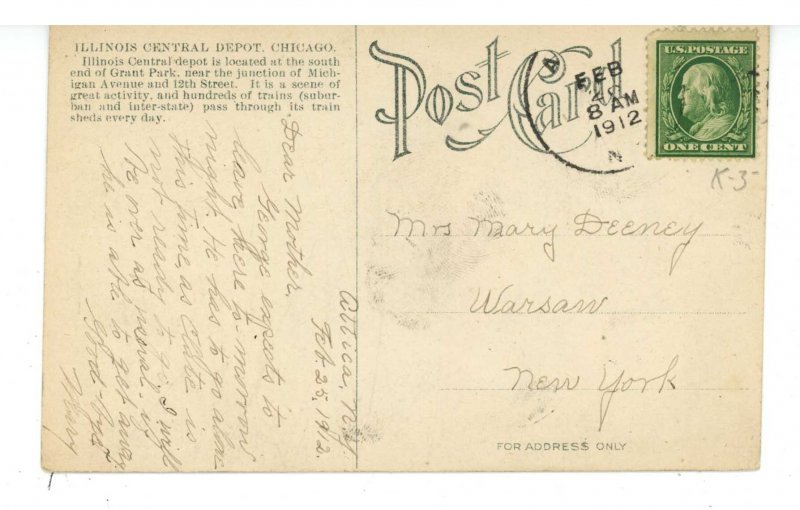 ILLINOIS CENTRAL DEPOT, CHICAGO.
Illinois Central depot is located at the south
end of Grant Park, near the junction of Mich-
igan Avenue and 12th Street. It is a scene of
great activity, and hundreds of trains (subur-
ban and inter-state) pass through its train
sheds every day.
Post Card
A
FEB
8 AM
1912
N
U.S. POSTAGE
ONE CENT
K-3
Attica, N.Y.
Feb. 25, 1912.
Dear Mother,
George expects to
leave here to-morrow
night. He has to go alone
this time, as is
not ready to go. I will
be over as usual if
he is able to get away.
Good-bye
Mary
Mrs Mary Deeney
Warsaw
New York
FOR ADDRESS ONLY